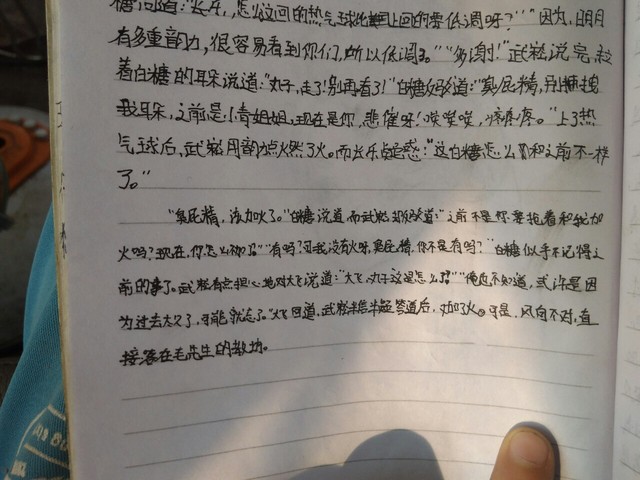 糖问道:"长乐,怎么这回的热气球比上回的要低调呀?""因为,明月
有多重韵力,很容易看到你们,所以低调了。""多谢!"武崧说完,
着白糖的耳朵说道:"丸子,走了!别再看了!"白糖道:"臭屁精,别
耳朵,之前是小青姐姐,现在是你,悲催呀!唉唉唉,疼疼疼。"上了热
气球后,武崧用韵力点燃了火。而长乐疑惑:"这白糖怎么和之前不一样
了。"
"臭屁精,该加火了。"白糖说道,而武崧道:"之前不是你要抢着和我加
火吗?现在,你怎么了?""有吗?可我没有火呀,臭屁精,你不是有吗?"白糖似乎不记得之
前的事了。武崧有点担心地对大飞说道:"大飞,丸子这是怎么了?""俺也不知道,或许是因
为过去太久了,可能就忘了。"大飞回道,武崧半信半疑答道后,加了火。可是,风向不对,直
接落在毛先生的教坊。